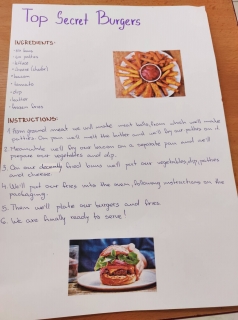 Top Secret Burgers
INGREDIENTS:
- buns
- patties
- cheese (cheddar)
- bacon
- tomato
- dip
- butter
- frozen fries
INSTRUCTIONS:
1. From ground meat we will make meat balls, from which we'll make
patties. On pan we'll melt the butter and we'll fry our patties on it
2. Meanwhile we'll fry our bacon on a separate pan and we'll
prepare our vegetables and dip.
3. On our already fried buns we'll put our vegetables, dip, patties
and cheese.
4. We'll put our fries into the oven, following instructions on the
packaging.
5. Then we'll plate our burgers and fries.
6. We are finally ready to serve!